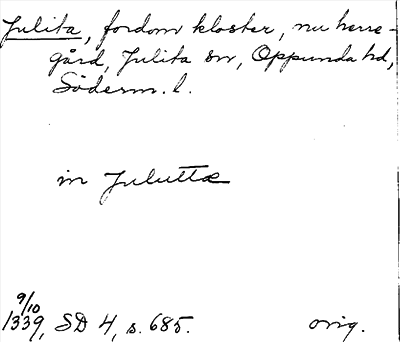 Julita, fordom kloster, nu herre-
gård, Julita sn, Oppunda hd,
Söderm. l.
in Juluttæ
9/10
1339, SD 4, s. 685. orig.